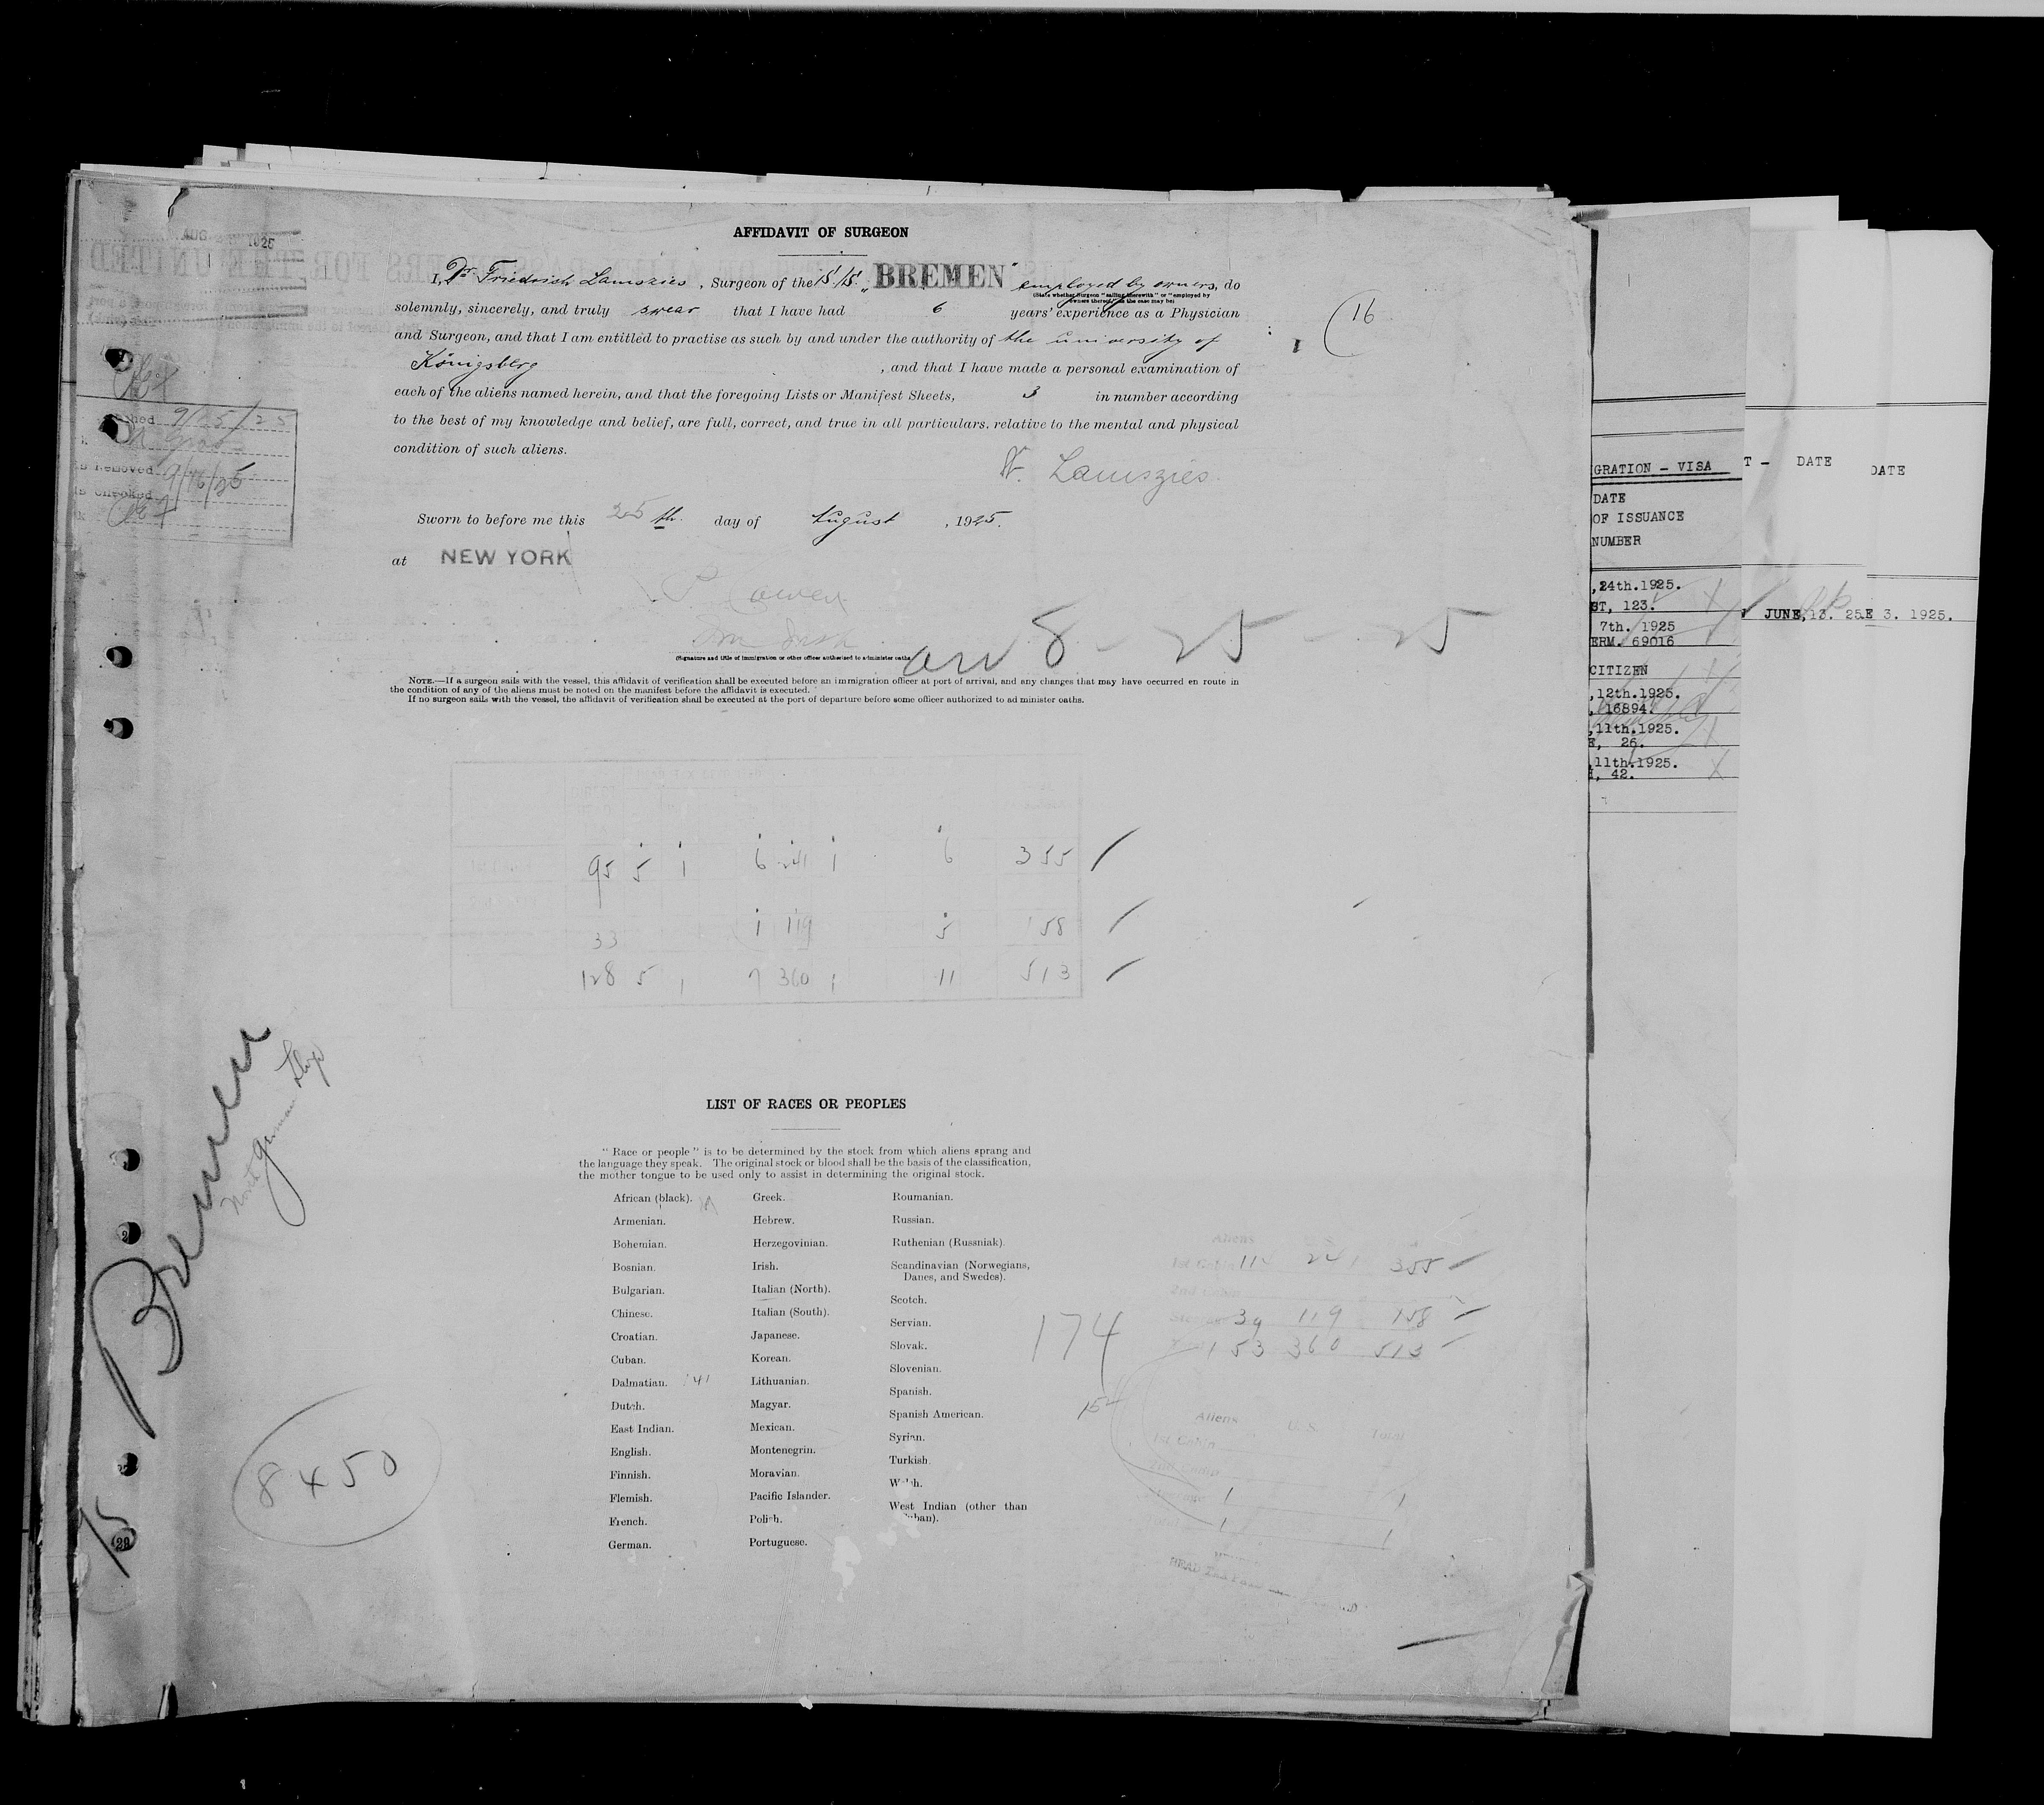 AUG 1925
AFFIDAVIT OF SURGEON
I, Dr Friedrich Lamszies, Surgeon of the S.S. „BREMEN" employed by owners, do
(State whether Surgeon "sailing therewith" or "employed by
owners thereof," as the case may be)
solemnly, sincerely, and truly swear that I have had 6 years' experience as a Physician
and Surgeon, and that I am entitled to practise as such by and under the authority of the university of
Königsberg , and that I have made a personal examination of
each of the aliens named herein, and that the foregoing Lists or Manifest Sheets, 3 in number according
to the best of my knowledge and belief, are full, correct, and true in all particulars. relative to the mental and physical
condition of such aliens.
Lamszies.
Sworn to before me this 25th. day of August , 1925.
at NEW YORK
(Signature and title of immigration or other officer authorised to administer oaths
8-25-25
NOTE.—If a surgeon sails with the vessel, this affidavit of verification shall be executed before an immigration officer at port of arrival, and any changes that may have occurred en route in
the condition of any of the aliens must be noted on the manifest before the affidavit is executed.
If no surgeon sails with the vessel, the affidavit of verification shall be executed at the port of departure before some officer authorized to ad minister oaths.
(16
9/25/25
s Removed 9/16/25
s Checked
95 5 1 6 241 1 6 355
33 1 119 5 158
128 5 1 7 360 1 11 513
Bremen
North German Lloyd
8450
75
LIST OF RACES OR PEOPLES
"Race or people" is to be determined by the stock from which aliens sprang and
the language they speak. The original stock or blood shall be the basis of the classification,
the mother tongue to be used only to assist in determining the original stock.
African (black).
Armenian.
Bohemian.
Bosnian.
Bulgarian.
Chinese.
Croatian.
Cuban.
Dalmatian.
Dutch.
East Indian.
English.
Finnish.
Flemish.
French.
German.
Greek.
Hebrew.
Herzegovinian.
Irish.
Italian (North).
Italian (South).
Japanese.
Korean.
Lithuanian.
Magyar.
Mexican.
Montenegrin.
Moravian.
Pacific Islander.
Polish.
Portuguese.
Roumanian.
Russian.
Ruthenian (Russniak).
Scandinavian (Norwegians,
Danes, and Swedes).
Scotch.
Servian.
Slovak.
Slovenian.
Spanish.
Spanish American.
Syrian.
Turkish.
Welsh.
West Indian (other than
Cuban).
174
Aliens
1st Cabin 114 241 355
2nd Cabin
39 119 158
153 360 513
154
Aliens U.S. Total
1st Cabin
2nd Cabin
1 1
Total 1 1
HEAD TAX
GRATION - VISA
DATE
OF ISSUANCE
NUMBER
,24th.1925.
ST, 123.
7th. 1925
ERM. 69016
CITIZEN
,12th.1925.
, 16894.
,11th.1925.
E, 26.
,11th.1925.
, 42.
T - DATE
JUNE,13. 25
DATE
E 3. 1925.